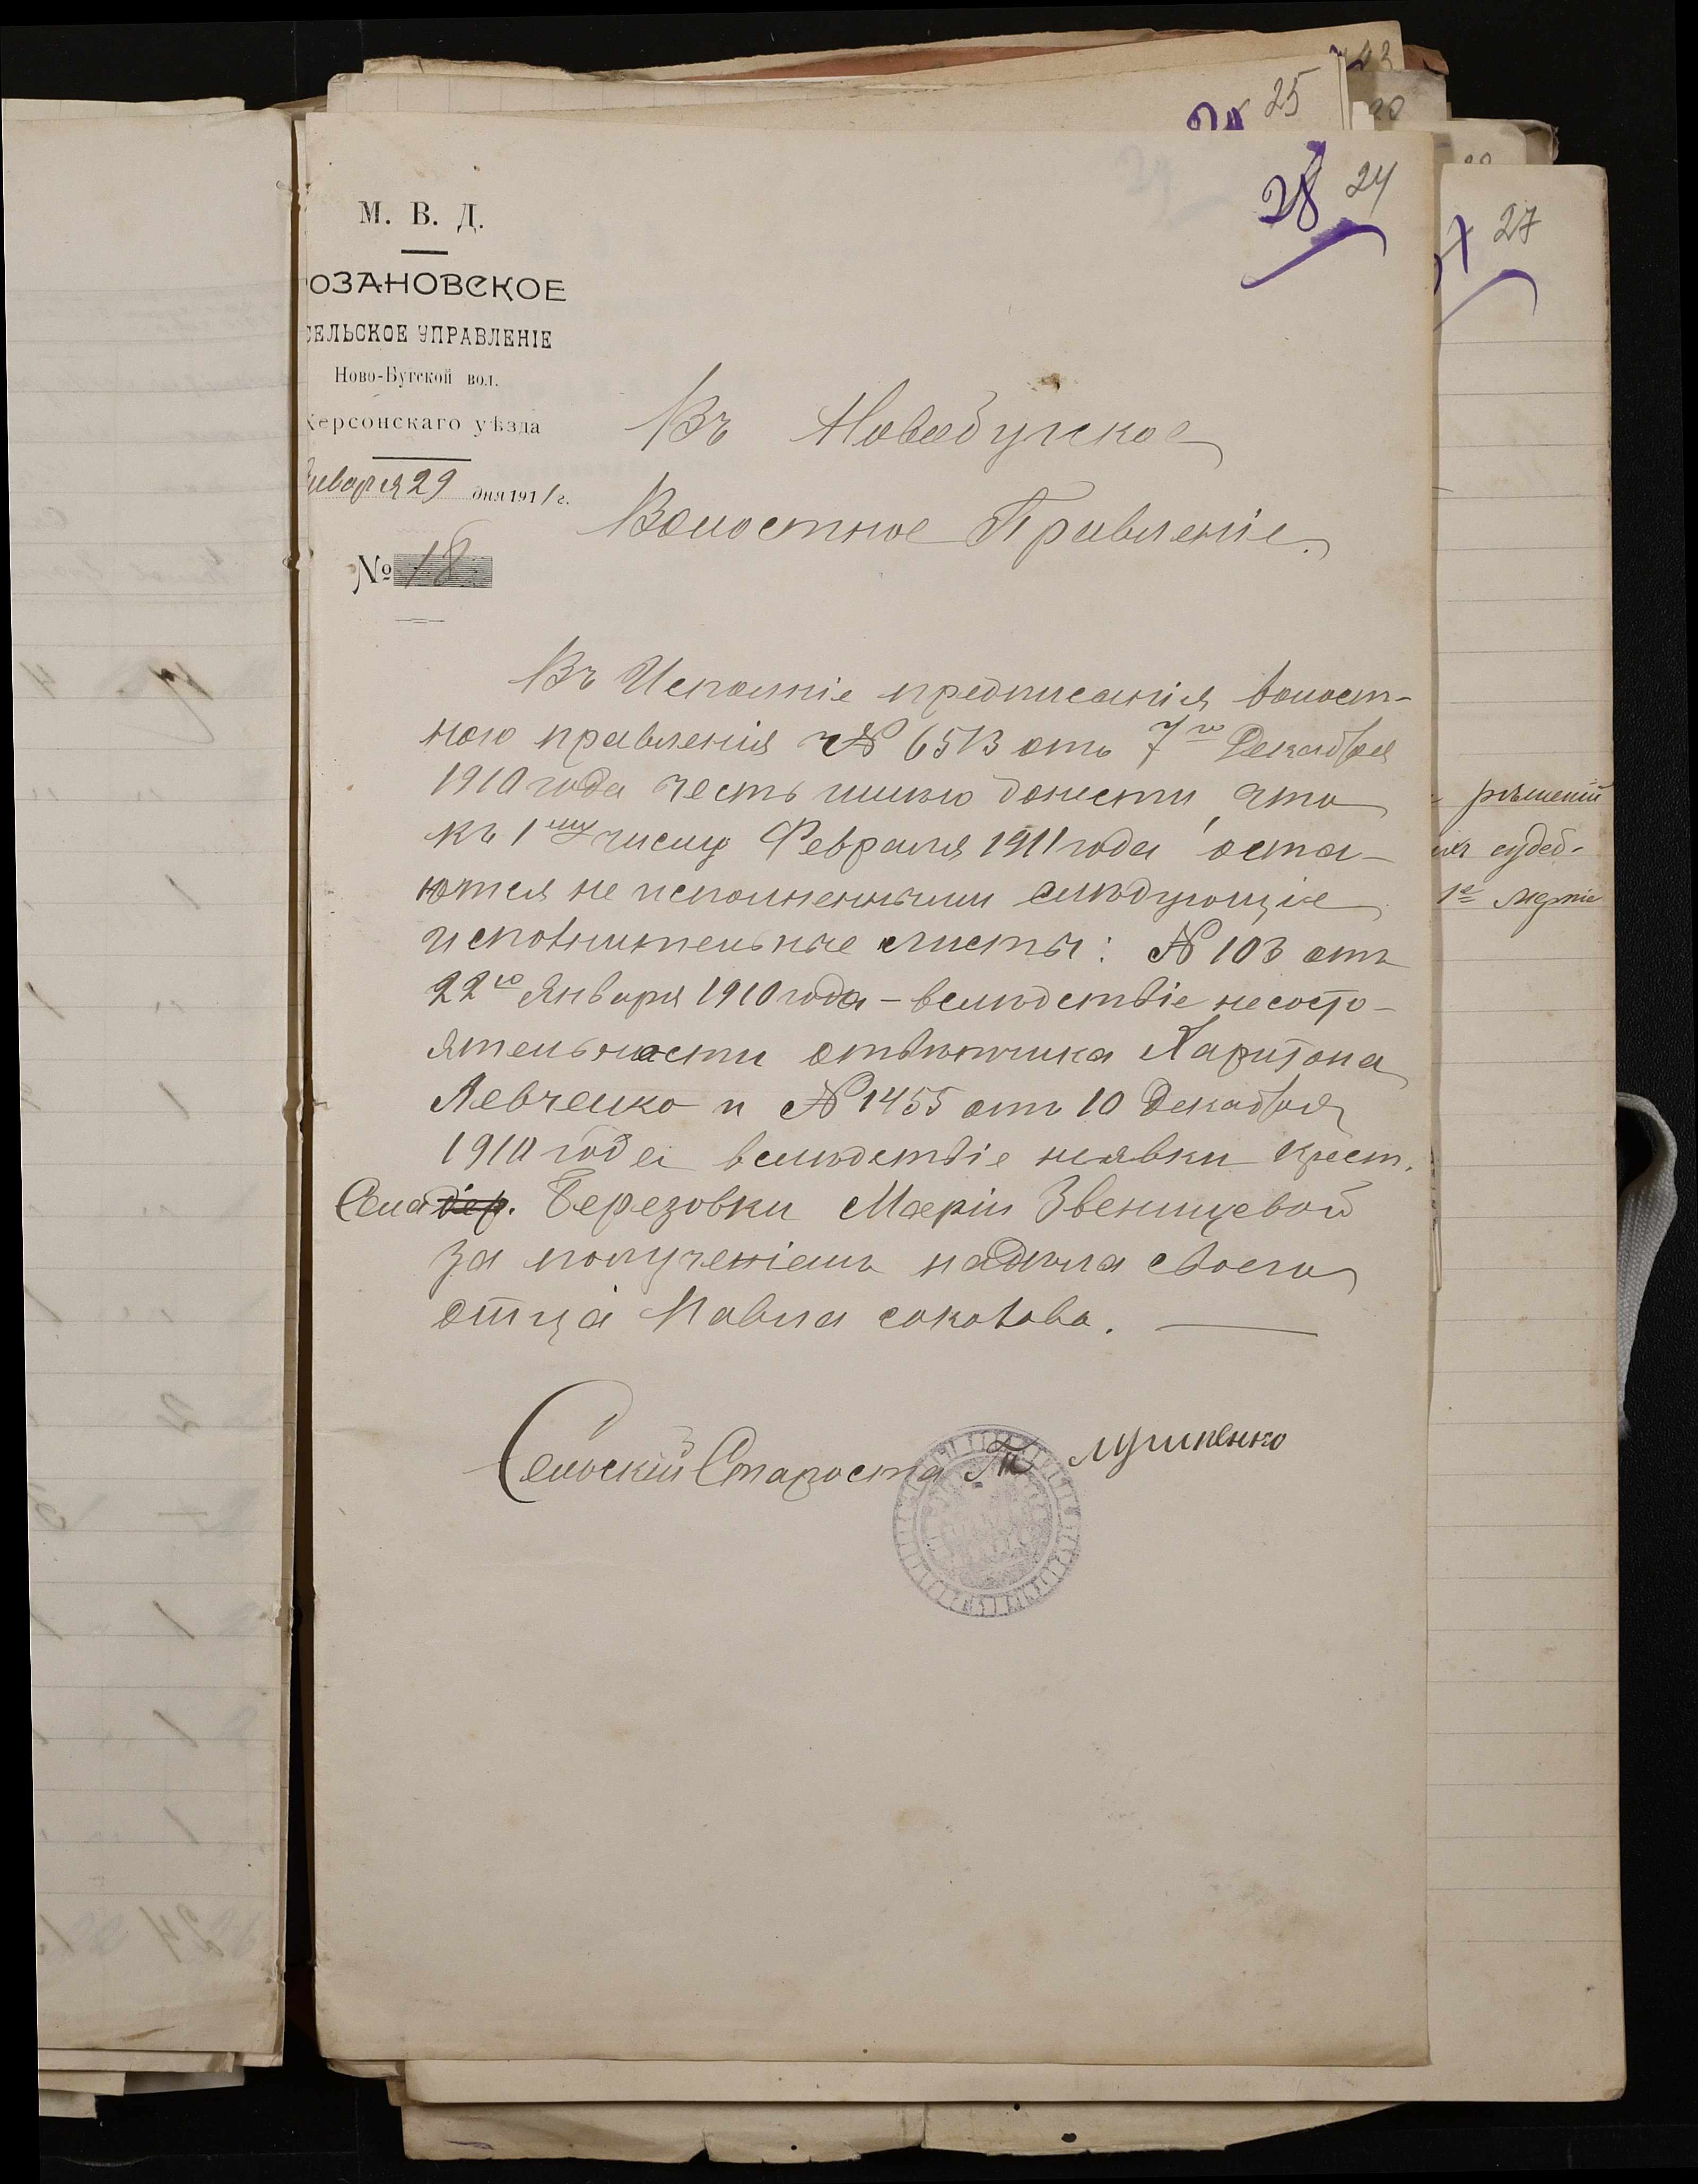 25
23
20
28 24
27
М. В. Д.
ОЗАНОВСКОЕ
СЕЛЬСКОЕ УПРАВЛЕНІЕ
Ново-Бугской вол.
Херсонскаго уѣзда
Января 29 дня 1911 г.
№ 18
Въ Новобугское
Волостное Правленіе.
Въ Исполніе предписанія волост-
ного правленія № 6513 отъ 7го Декабря
1910 года честь имѣю донести, что
къ 1му числу Февраля 1911 года оста-
ются не исполненными слѣдующіе
исполнительные листы: № 103 отъ
22го Января 1910 года – вслѣдствіе несосто-
ятельности отвѣтчика Харитона
Левченко и № 1455 отъ 10 Декабря
1910 года вслѣдствіе неявки крест.
Села дер. Березовки Маріи Звенищевой
за полученіемъ надѣла своего
отца Павла соколова.
Сельскій Староста
рѣшеній
судеб-
1е